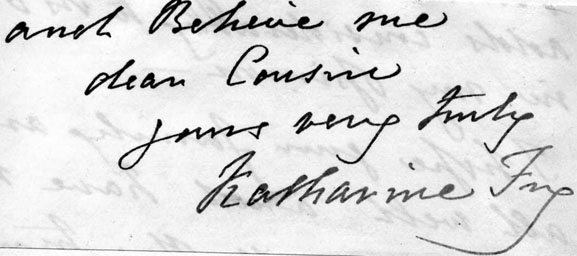 and Believe me
dear Cousin
yours very truly
Katharine Fry